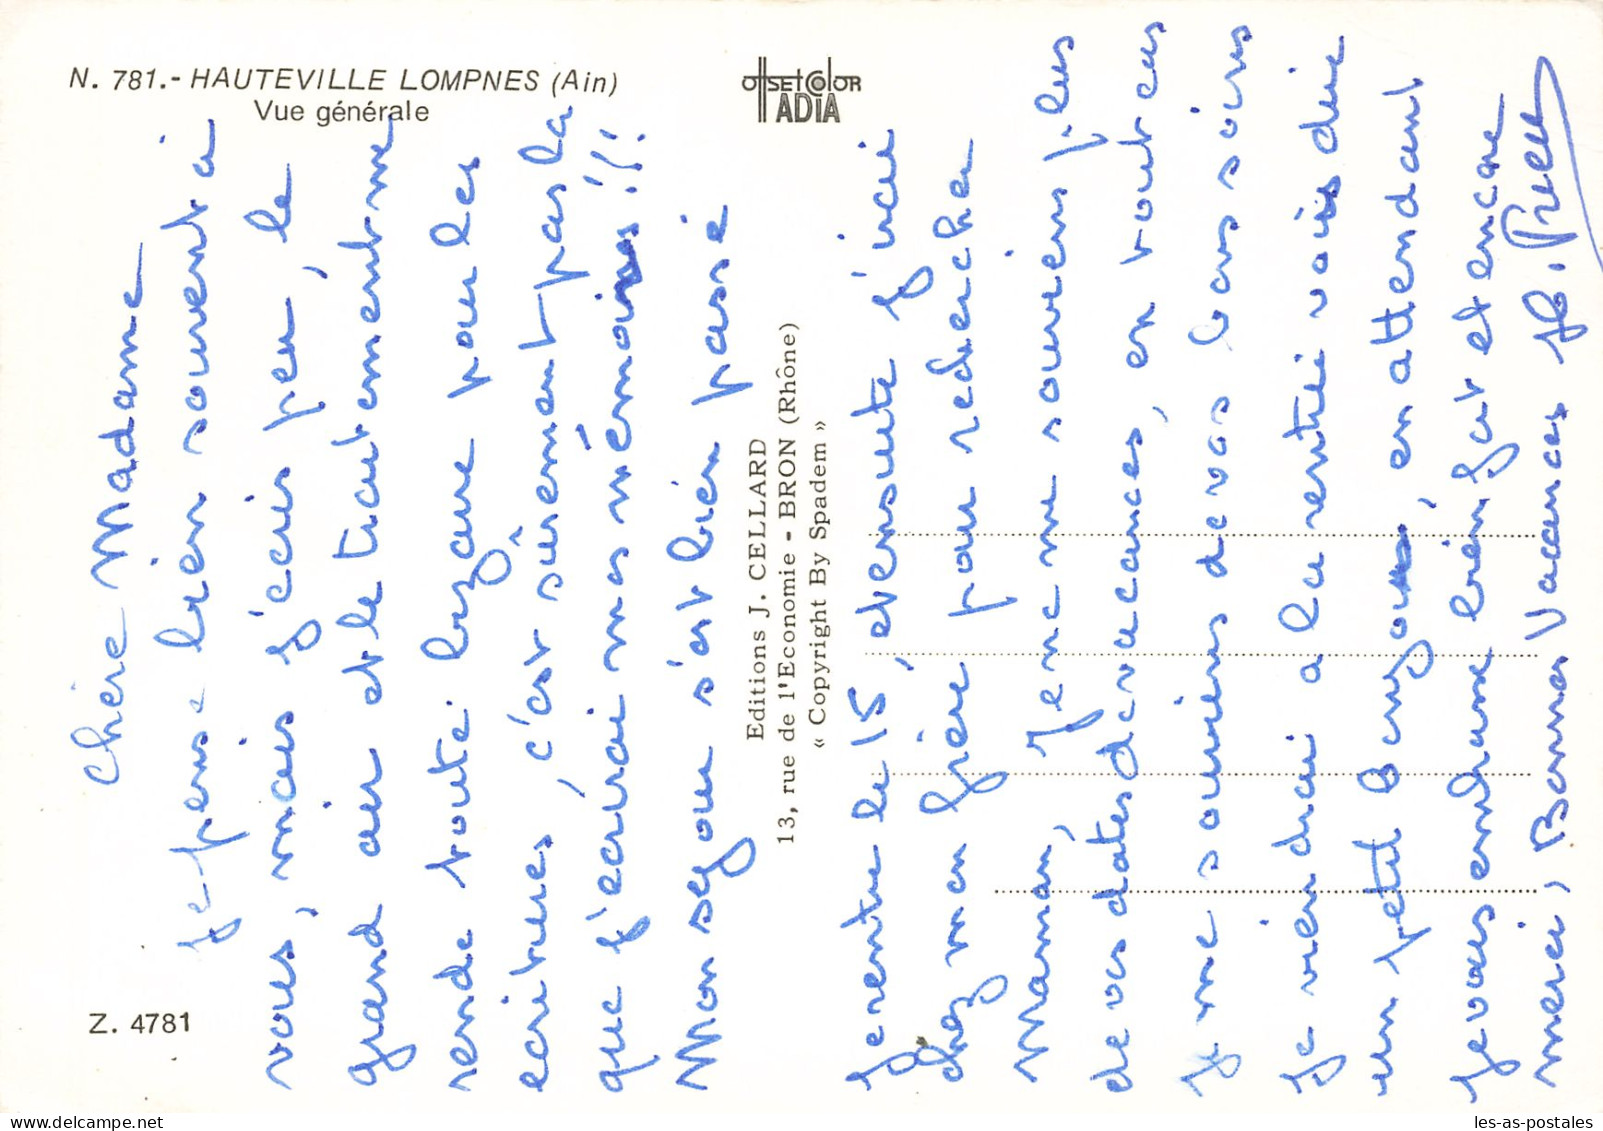 N. 781.- HAUTEVILLE LOMPNES (Ain)
Vue générale
OffSET COLOR
ADIA
Z. 4781
Editions J. CELLARD
13, rue de l'Economie - BRON (Rhône)
« Copyright By Spadem »
Chère Madame
Je pense bien souvent à
vous, mais j'écris peu, le
grand air et le traitement me
rende toute bizare pour les
ecritures, c'est sûrement pas la
que j'écrirai mes mémoires !!!
Mon sejour s'est bien passé
Je rentre le 15, et ensuite j'irai
chez mon frère pour rechercher
Maman, Je ne me souviens plus
de vos dates de vacances, en tout cas
Je me souviens de vos bons soins
Je viendrai a la rentrée vous dire
un petit Bonjour, en attendant
Je vous embrasse bien fort et encore
merci, Bonnes Vacances
les-as-postales